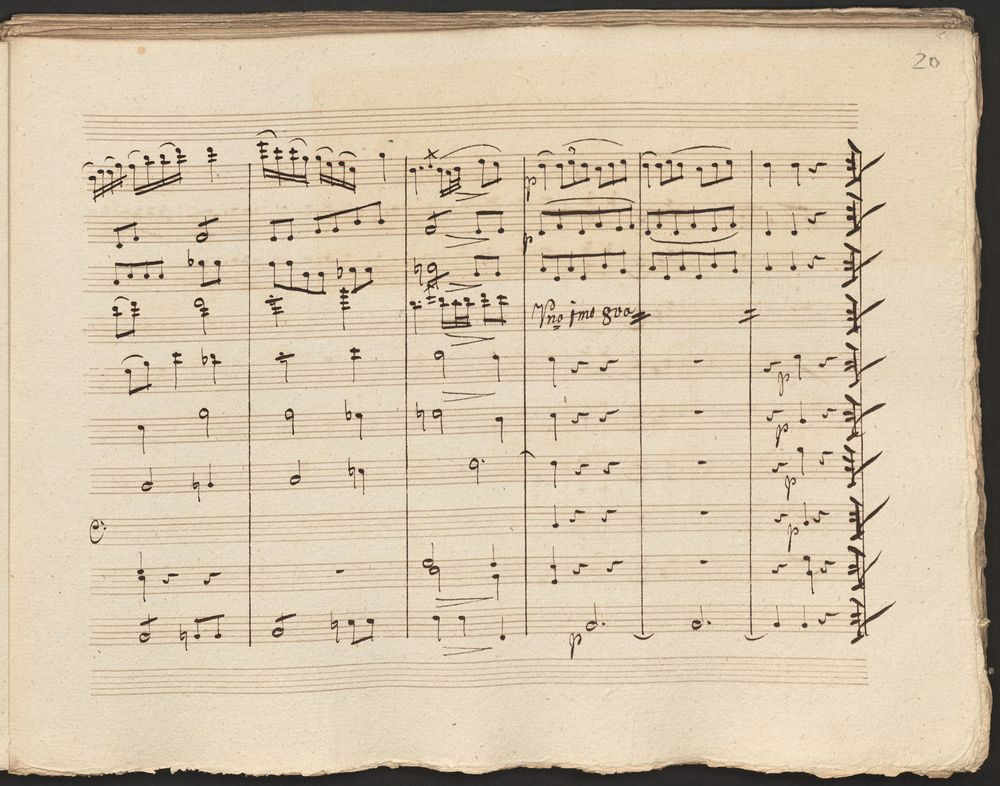 20
p
p
Vno jmo 8va
p
p
p
p
p